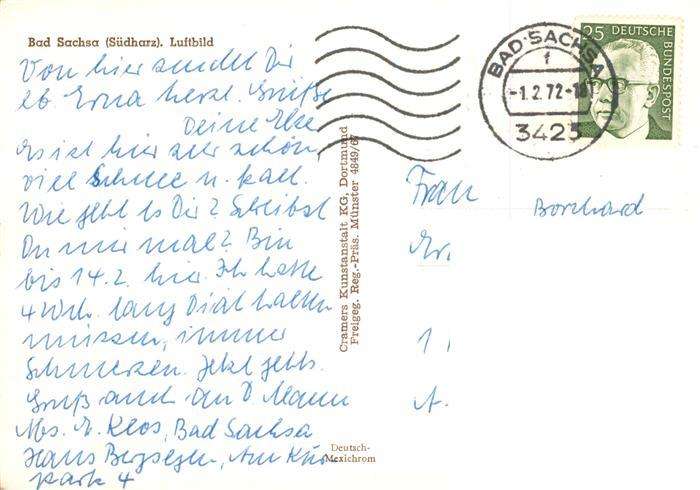 Bad Sachsa (Südharz). Luftbild
Von hier sendet Dir
lb. Erna herzl. Grüße
Deine Else
Es ist hier sehr schön,
viel Schnee u. kalt.
Wie geht es Dir? Schreibst
Du mir mal? Bin
bis 14.2. hier. Ich hatte
4 Woch. lang Diät halten
müssen, immer
Schmerzen. Jetzt gehts.
Gruß auch an D. Mann
Abs. E. Klos, Bad Sachsa
Haus Bergsegen, Am Kur-
park 4
Cramers Kunstanstalt KG, Dortmund
Freigeg. Reg.-Präs. Münster 4849/67
Deutsch-
Mexichrom
BAD SACHSA
f
-1.2.72
3423
25 DEUTSCHE
BUNDESPOST
Frau
Borchard